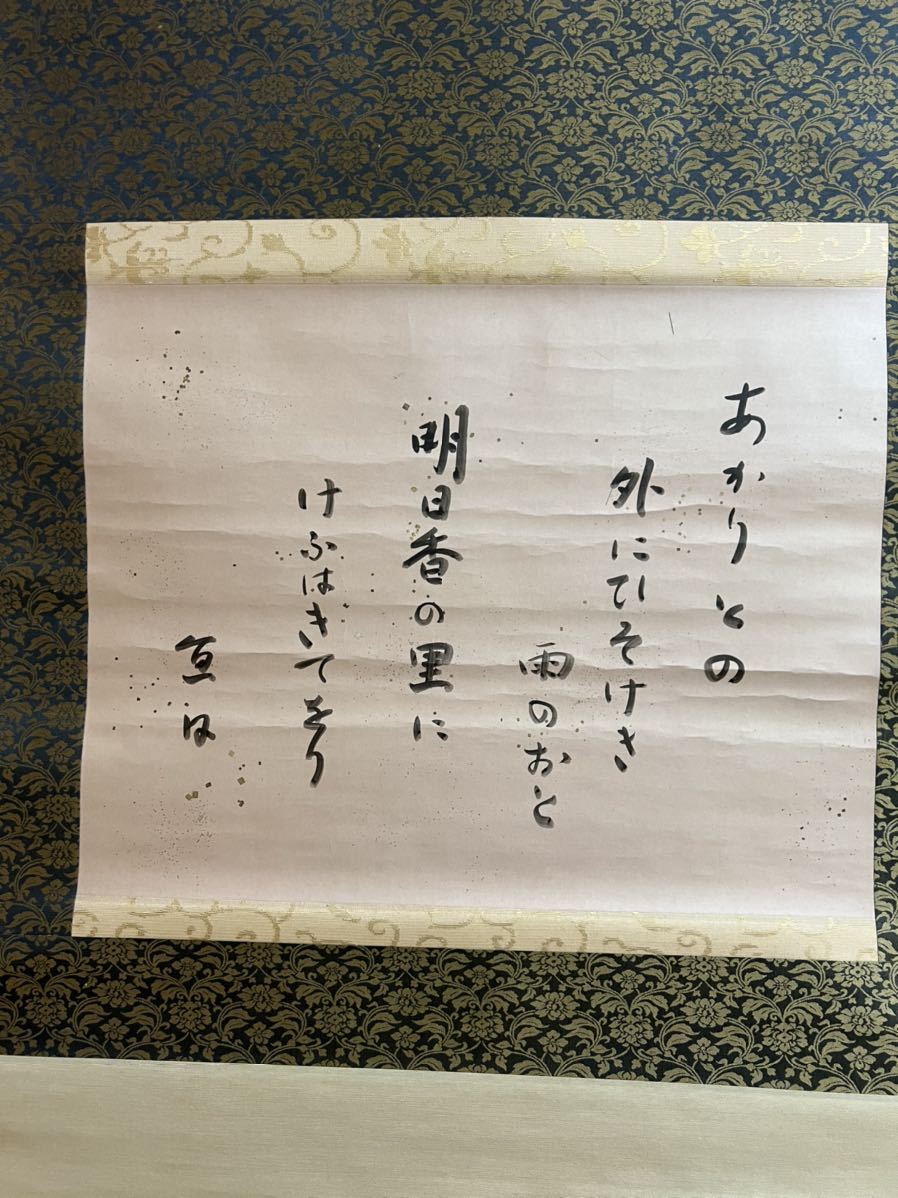 あかりとの
外にひそけき
雨のおと
明日香の里に
けふはきてをり
直日